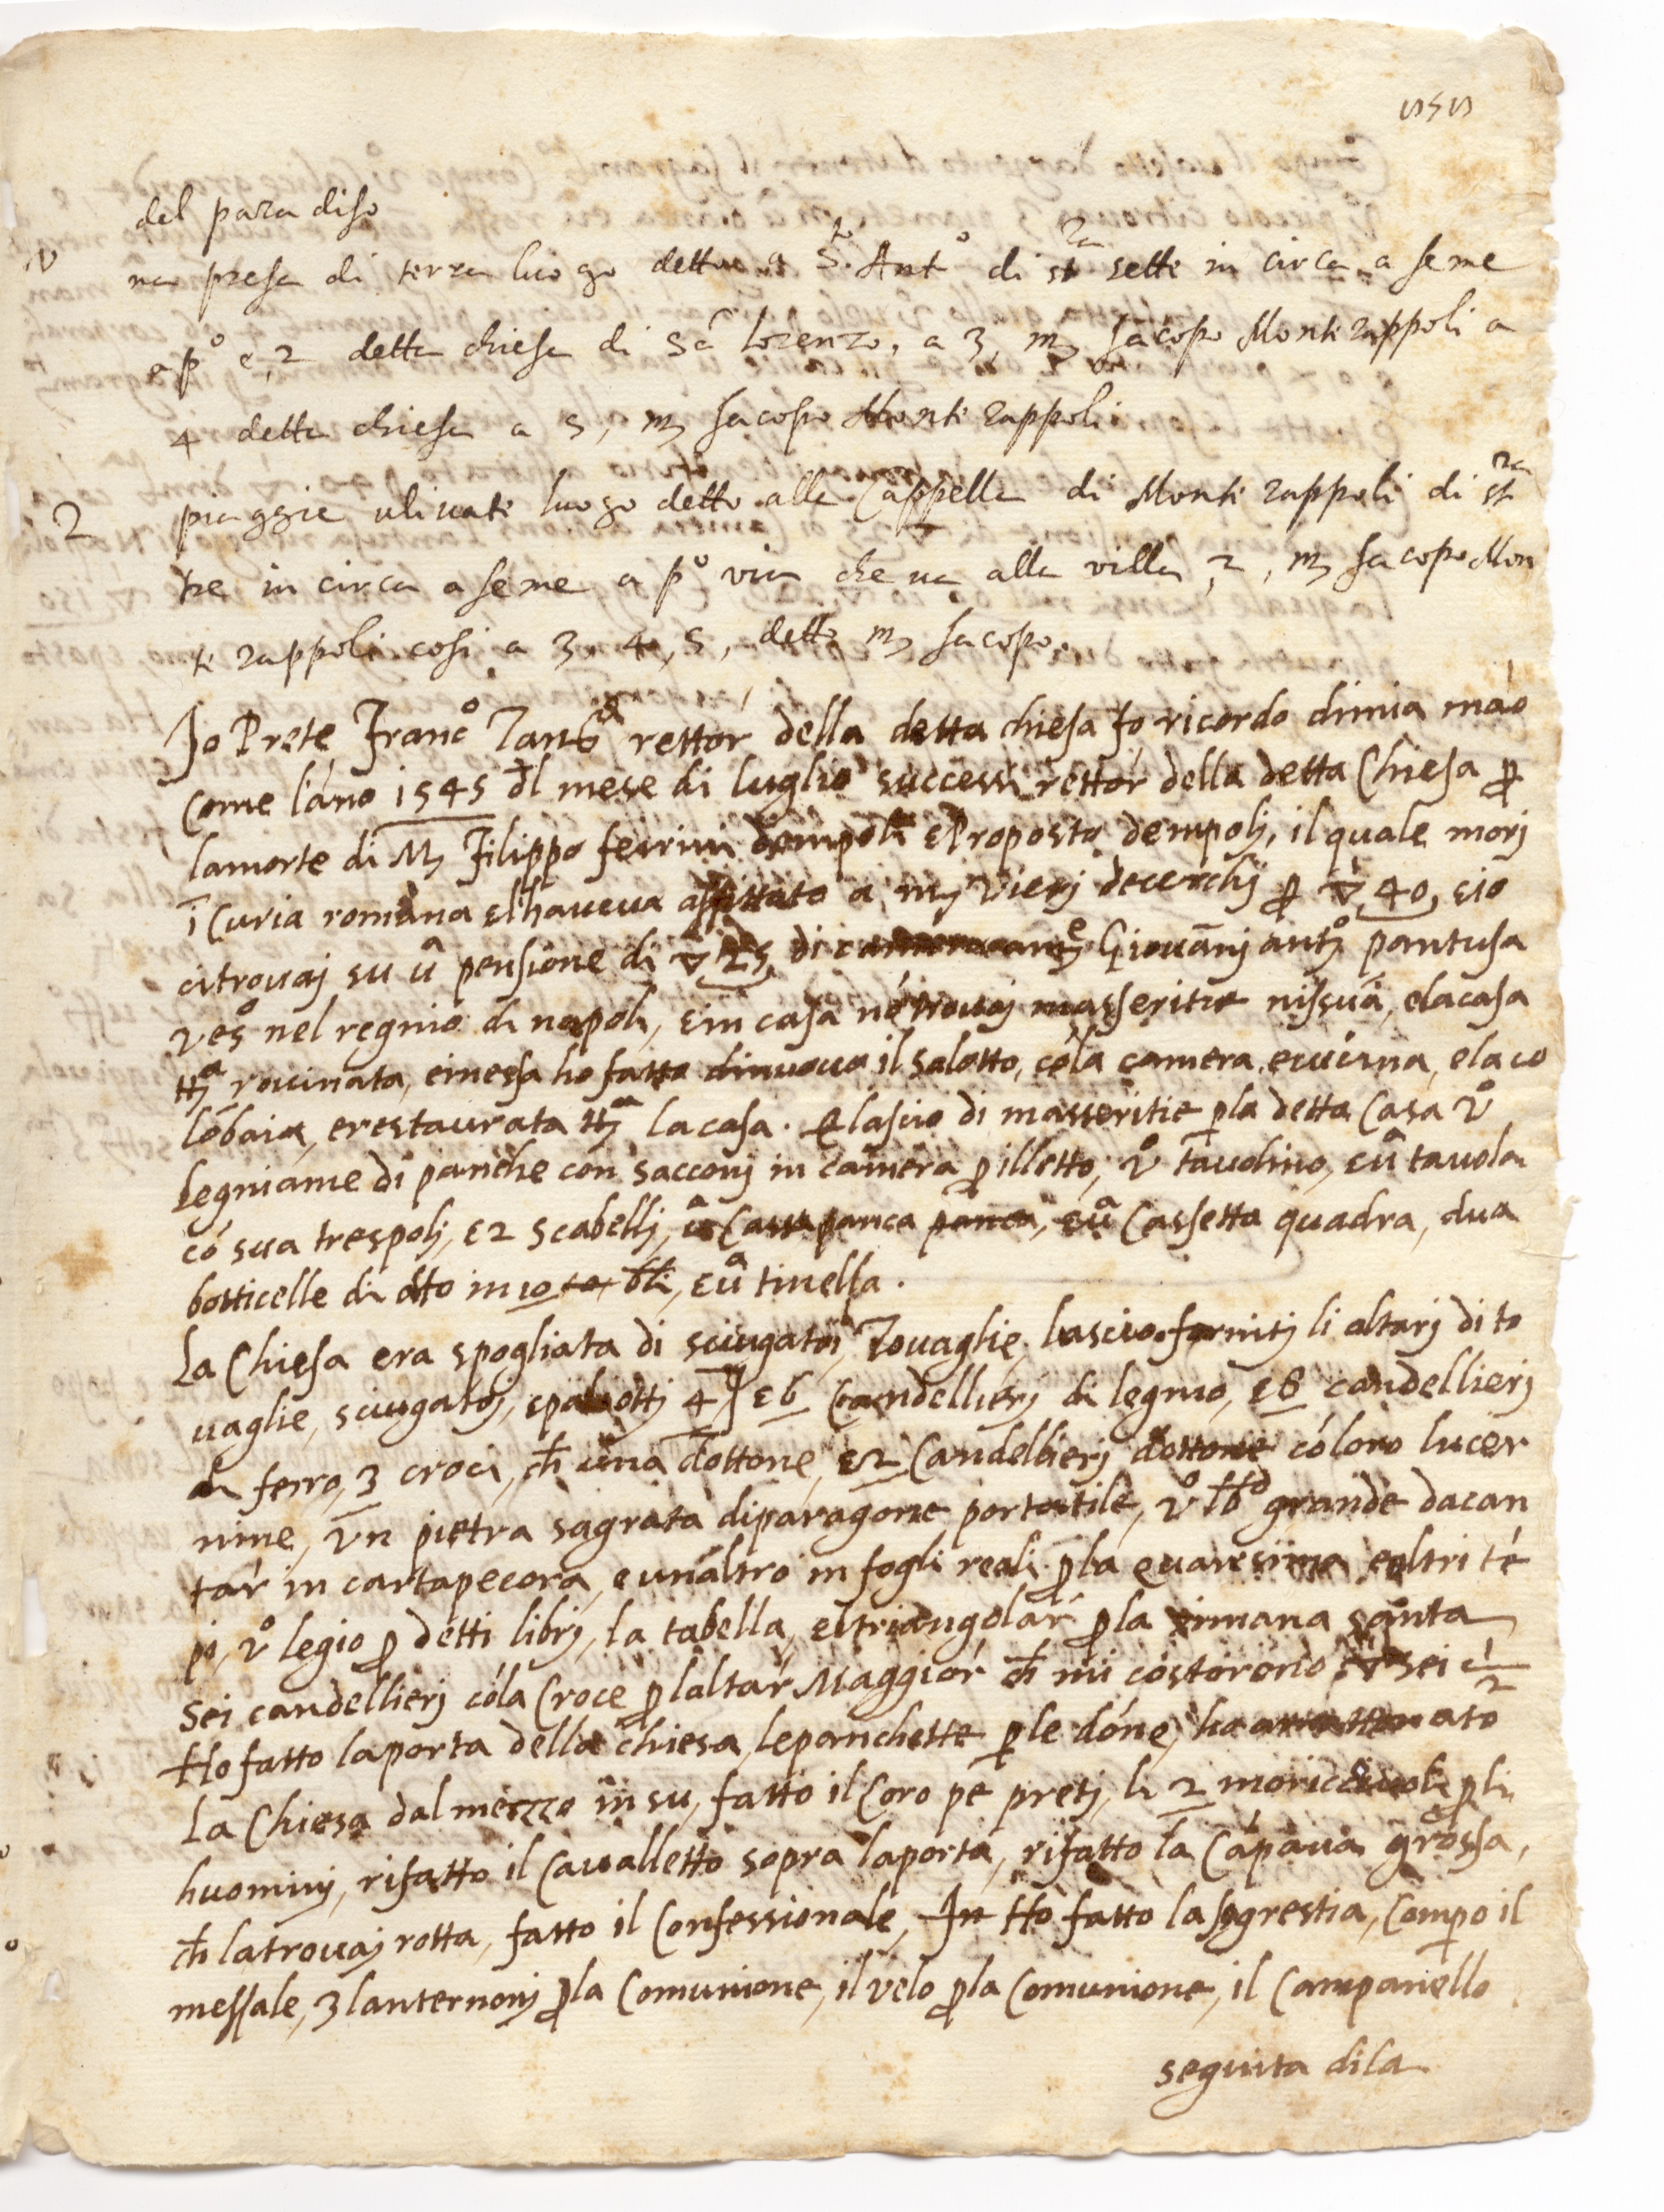 del paradiso
V na presa di terra luogo detto a Sto. Anto di stra sette in circa a seme
a po e, 2 detta chiesa di Sã lorenzo, a 3, m Jacopo Monti rappoli a
4 detta chiesa a 5, m Jacopo Monti rappoli
2 piaggie ulivati luogo detto alla Cappella di Monti rappoli di stra
tre in circa a seme a po via che va alla villa, 2, m Jacopo Mon
ti rappoli cosi a 3, 4, 5, detto m Jacopo,
Jo Prete Franco rettor della detta chiesa fo ricordo dimia mão
Come lãno 1545 dl mese di luglio successi rettor della detta Chiesa p
lamorte di M Filippo ferrini dempoli e Proposto dempolj, il quale morj
ĩ Curia romana elhaveva affittato a m vierj decerchij p ▽ 40, eio
citrovaj su ũa pensione di ▽ 25 di Giovãnj anto pantusa
veso nel regnio di napoli, ein casa nõ trovaj masseritie nissuã, elacasa
tta rovinata, einessa ho fatto dinuovo il salotto, cõla camera, ecucina, elaco
lõbaia, erestaurata tta lacasa. E lascio di masseritie pla detta Casa vo
legniame di panche con sacconj in camera p illetto, vo tavolino, eũa tavola
cõ sua trespolj, e2 scabellj, ũa Cassapanca panca, eũa Cassetta quadra, dua
botticelle di dtto in 10 bli, eũa tinella.
La Chiesa era spogliata di sciugatoi, Tovaglie, lascio fornitj li altarj di to
vaglie, sciugatoj, epaliottj 4 e6 Candellierj di legnio, e6 candellierj
di ferro, 3 croci, ch una dottone, e2 Candellierj dottone cõloro lucer
nine, vn pietra sagrata diparagone portatile, vo lbo grande dacan
tar in cartapecora, e unaltro in fogli reali pla quaresima ealtri tẽ
pi, vo legio p detti librj, la tabella, eltriangolar pla simana santa
Sei candellierj cõla Croce p laltar Maggior ch mi costorono sei
Ho fatto laporta della chiesa, lepanchette ple dõne, ho
La Chiesa dal mezzo in su, fatto il Coro pe pretj, li 2 moricciuoli p li
huominj, rifatto il Cavalletto sopra laporta, rifatto la Cãpana grossa,
ch latrovaj rotta, fatto il Confessionale, In Ho fatto la sagrestia, Compo il
messale, 3 lanternonj pla Comunione, il velo pla Comunione, il Campanello
seguita dila